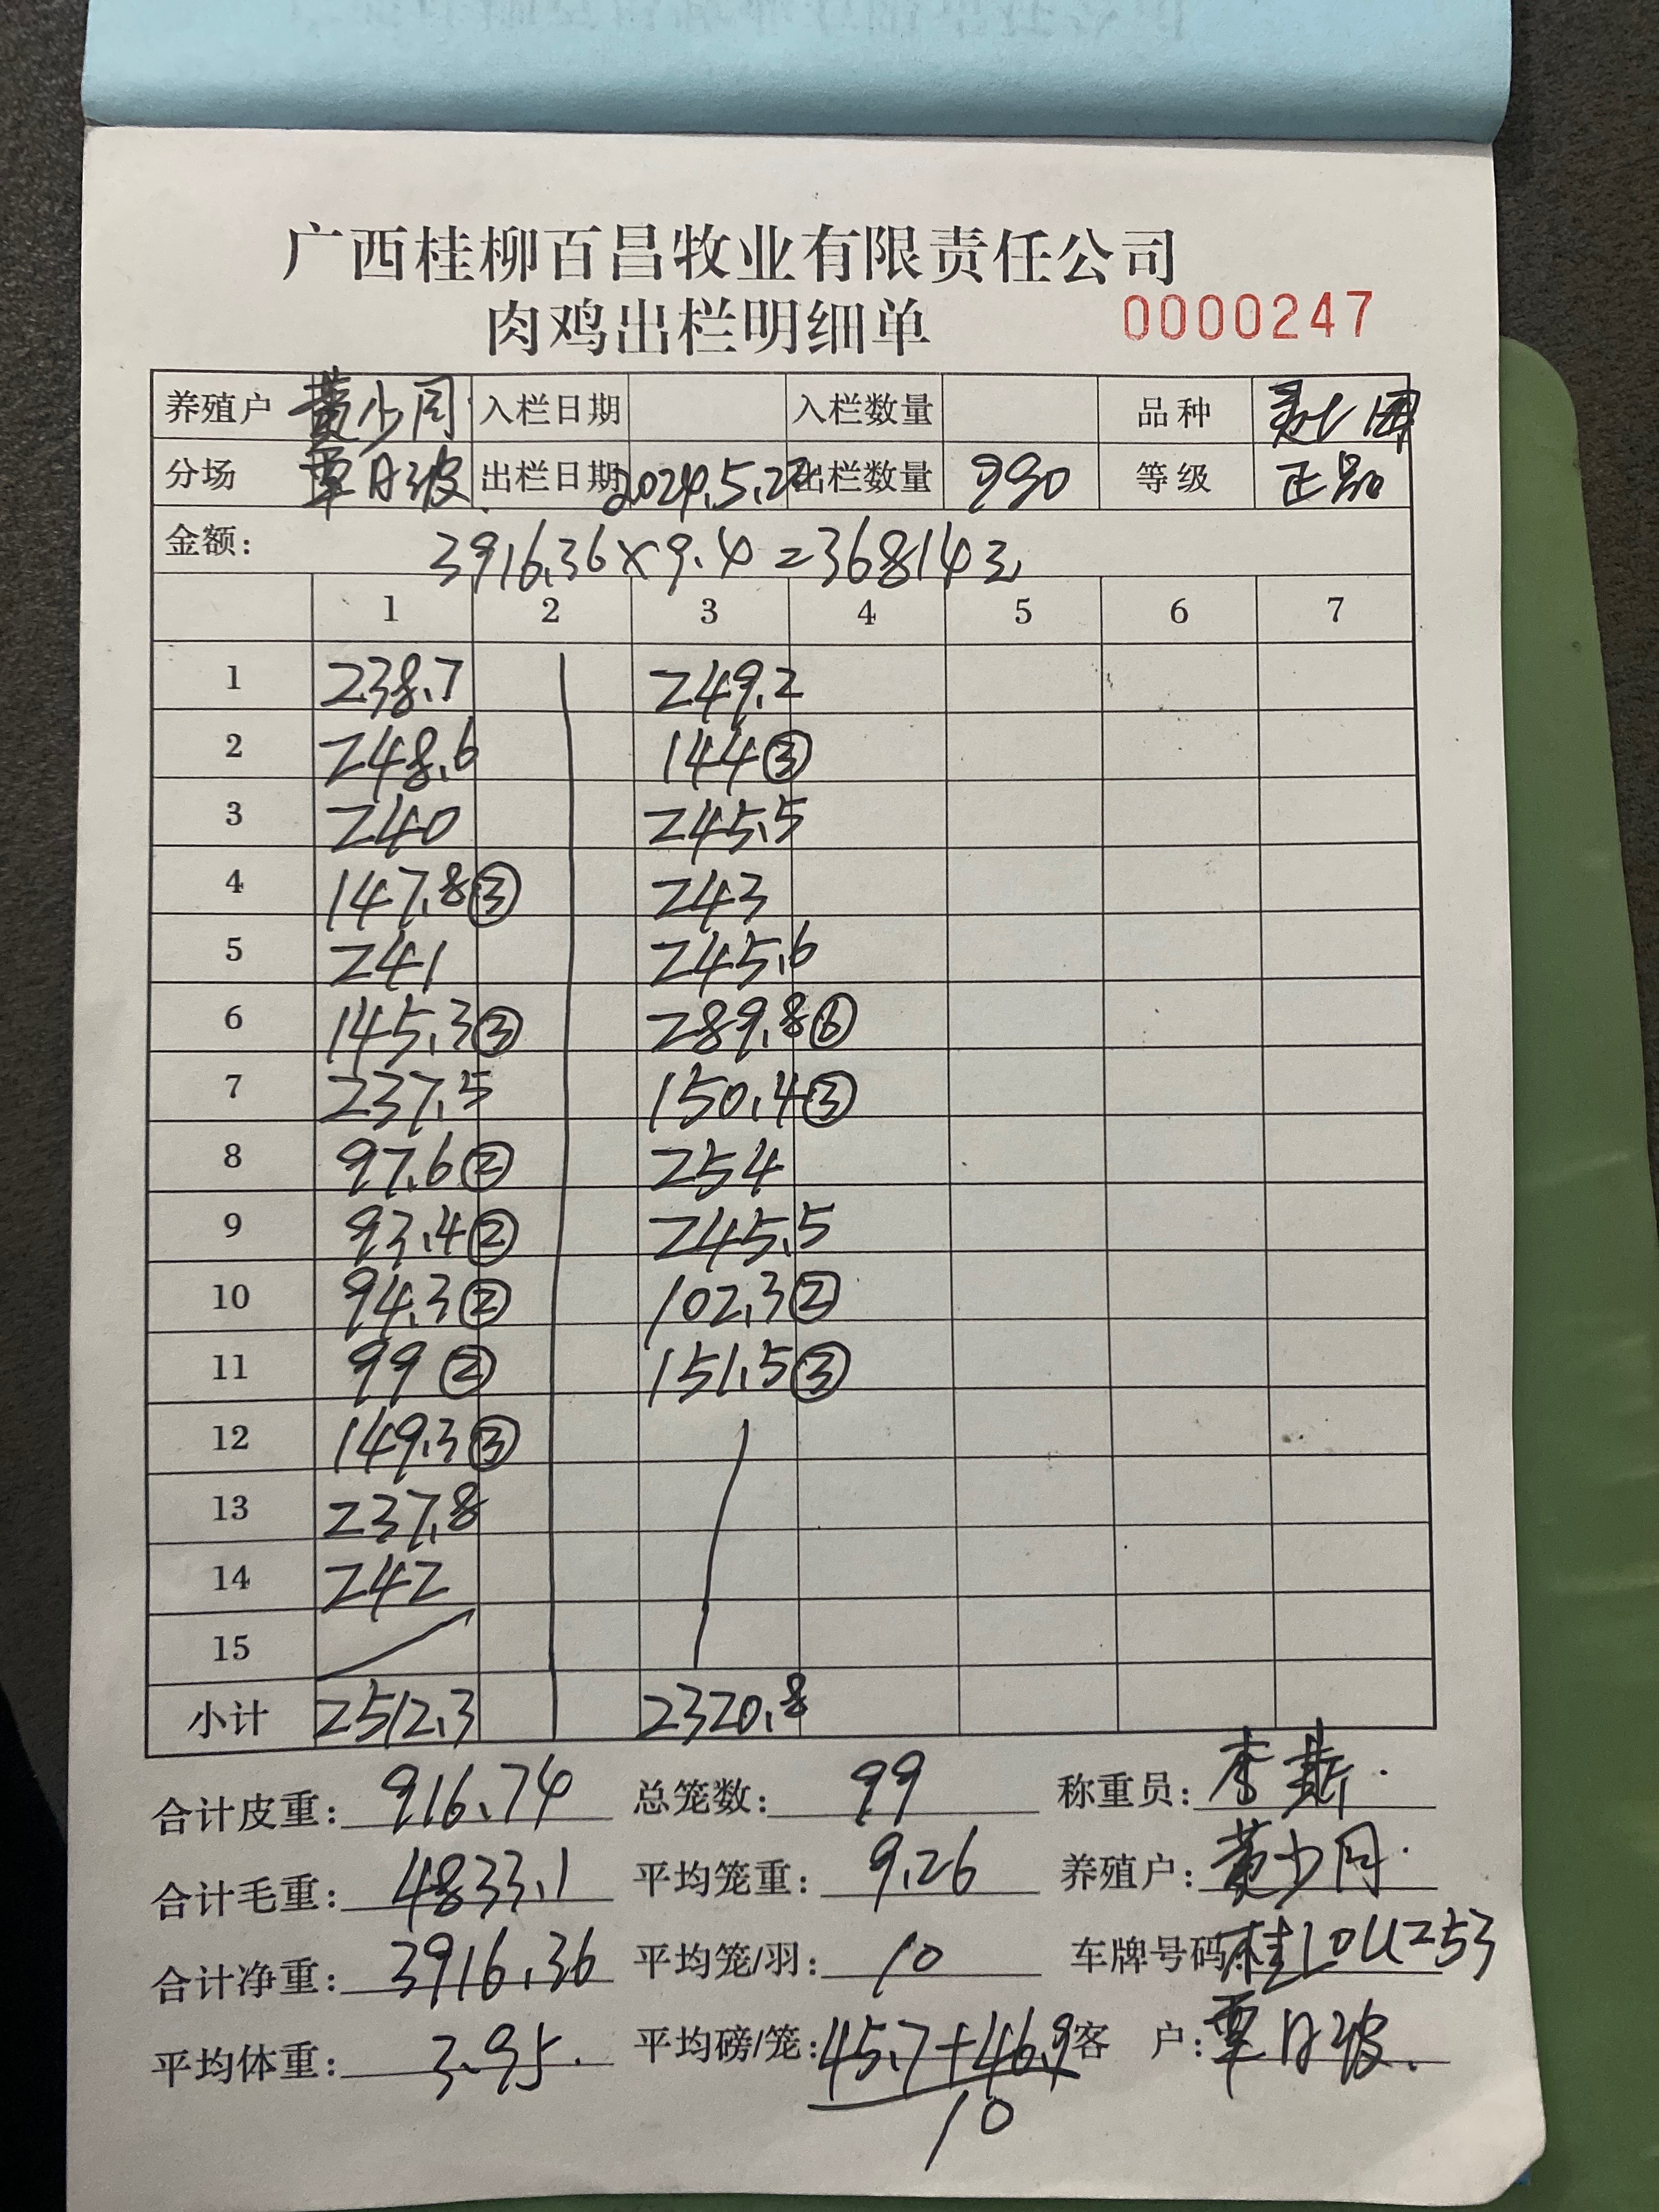 广西桂柳百昌牧业有限责任公司
肉鸡出栏明细单 0000247
养殖户 黄少同 入栏日期 入栏数量 品种
分场 覃月波 出栏日期 2024.5.22 出栏数量 990 等级 正品
金额: 3916.36×9.4=36814元
1 2 3 4 5 6 7
1 238.7 249.2
2 248.6 144③
3 240 245.5
4 147.8③ 243
5 241 245.6
6 145.3③ 289.8⑥
7 237.5 150.4③
8 97.6② 254
9 93.4② 245.5
10 94.3② 102.3②
11 99② 151.5③
12 149.3③
13 237.8
14 242
15
小计 2512.3 2320.8
合计皮重: 916.74 总笼数: 99 称重员: 李
合计毛重: 4833.1 平均笼重: 9.26 养殖户: 黄少同
合计净重: 3916.36 平均笼/羽: 10 车牌号码 桂L0U253
平均体重: 3.95 平均磅/笼: 45.7+46.9 客 户: 覃月波
10